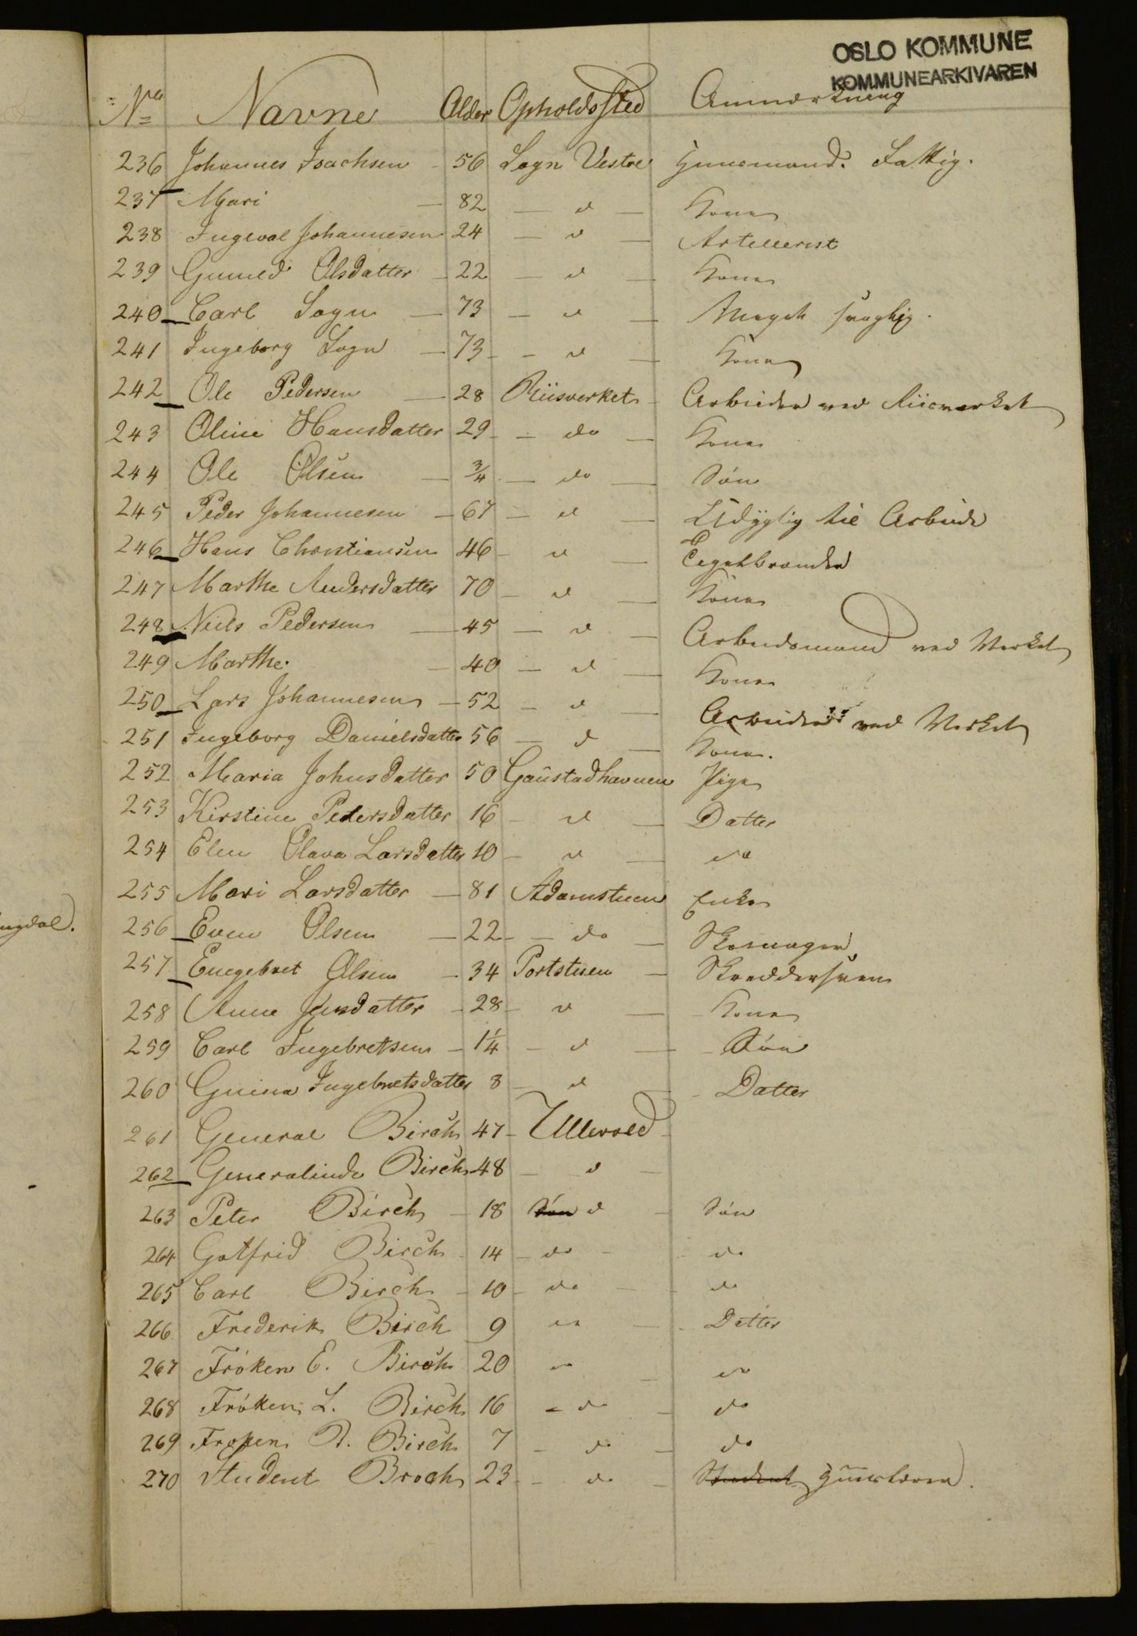 OSLO KOMMUNE
KOMMUNEARKIVAREN
No Navne Alder Opholdssted Anmærkning
236 Johannes Isachsen - 56 Sogn Vestre Huusmand. Fattig.
237 Mari - 82 - d - Kone
238 Ingeval Johannesen 24 - d - Artillerist
239 Gunild Olsdatter - 22 - d - Kone
240 Carl Sogn - 73 - d - Meget svaglig.
241 Ingeborg Sogn - 73 - d - Kone
242 Ole Pedersen - 28 Riisverket - Arbeider ved Riisverket
243 Oline Hansdatter 29 - do - Kone
244 Ole Olsen - 3/4 - do - Søn
245 Peder Johannesen - 67 - d - Udygtig til Arbeide
246 Hans Christiansen 46 - d - Tegelbrænder
247 Marthe Andersdatter 70 - d - Kone
248 Niels Pedersen - 45 - d - Arbeidsmand ved Verket
249 Marthe - 40 - d - Kone
250 Lars Johannesen - 52 - d - Arbeider ved Verket
251 Ingeborg Danielsdatter 56 - d - Kone.
252 Maria Johnsdatter 50 Gaustadhavnen Pige
253 Kirstine Pedersdatter 16 - d - Datter
254 Elen Olava Larsdatter 10 - d - do
255 Mari Larsdatter - 81 Adamstuen Enke
256 Even Olsen - 22 - do - Skomager
257 Engebret Olsen - 34 Portstuen - Skræddersvend
258 Anne Jensdatter - 28 - d - Kone
259 Carl Ingebretsen - 1 1/4 - d - Søn
260 Gunina Ingebretsdatter 8 - d - Datter
261 General Birch 47 - Ullevold
262 Generalinde Birch 48 - d -
263 Peter Birch - 18 Søn d - Søn
264 Gotfrid Birch - 14 - do - do
265 Carl Birch - 10 - do - do
266 Frederik Birch 9 do - Datter
267 Frøken E. Birch 20 do - do
268 Frøken L. Birch 16 - do - do
269 Frøken R. Birch 7 - do - do
270 Student Broch 23 - do Student Huuslærer.